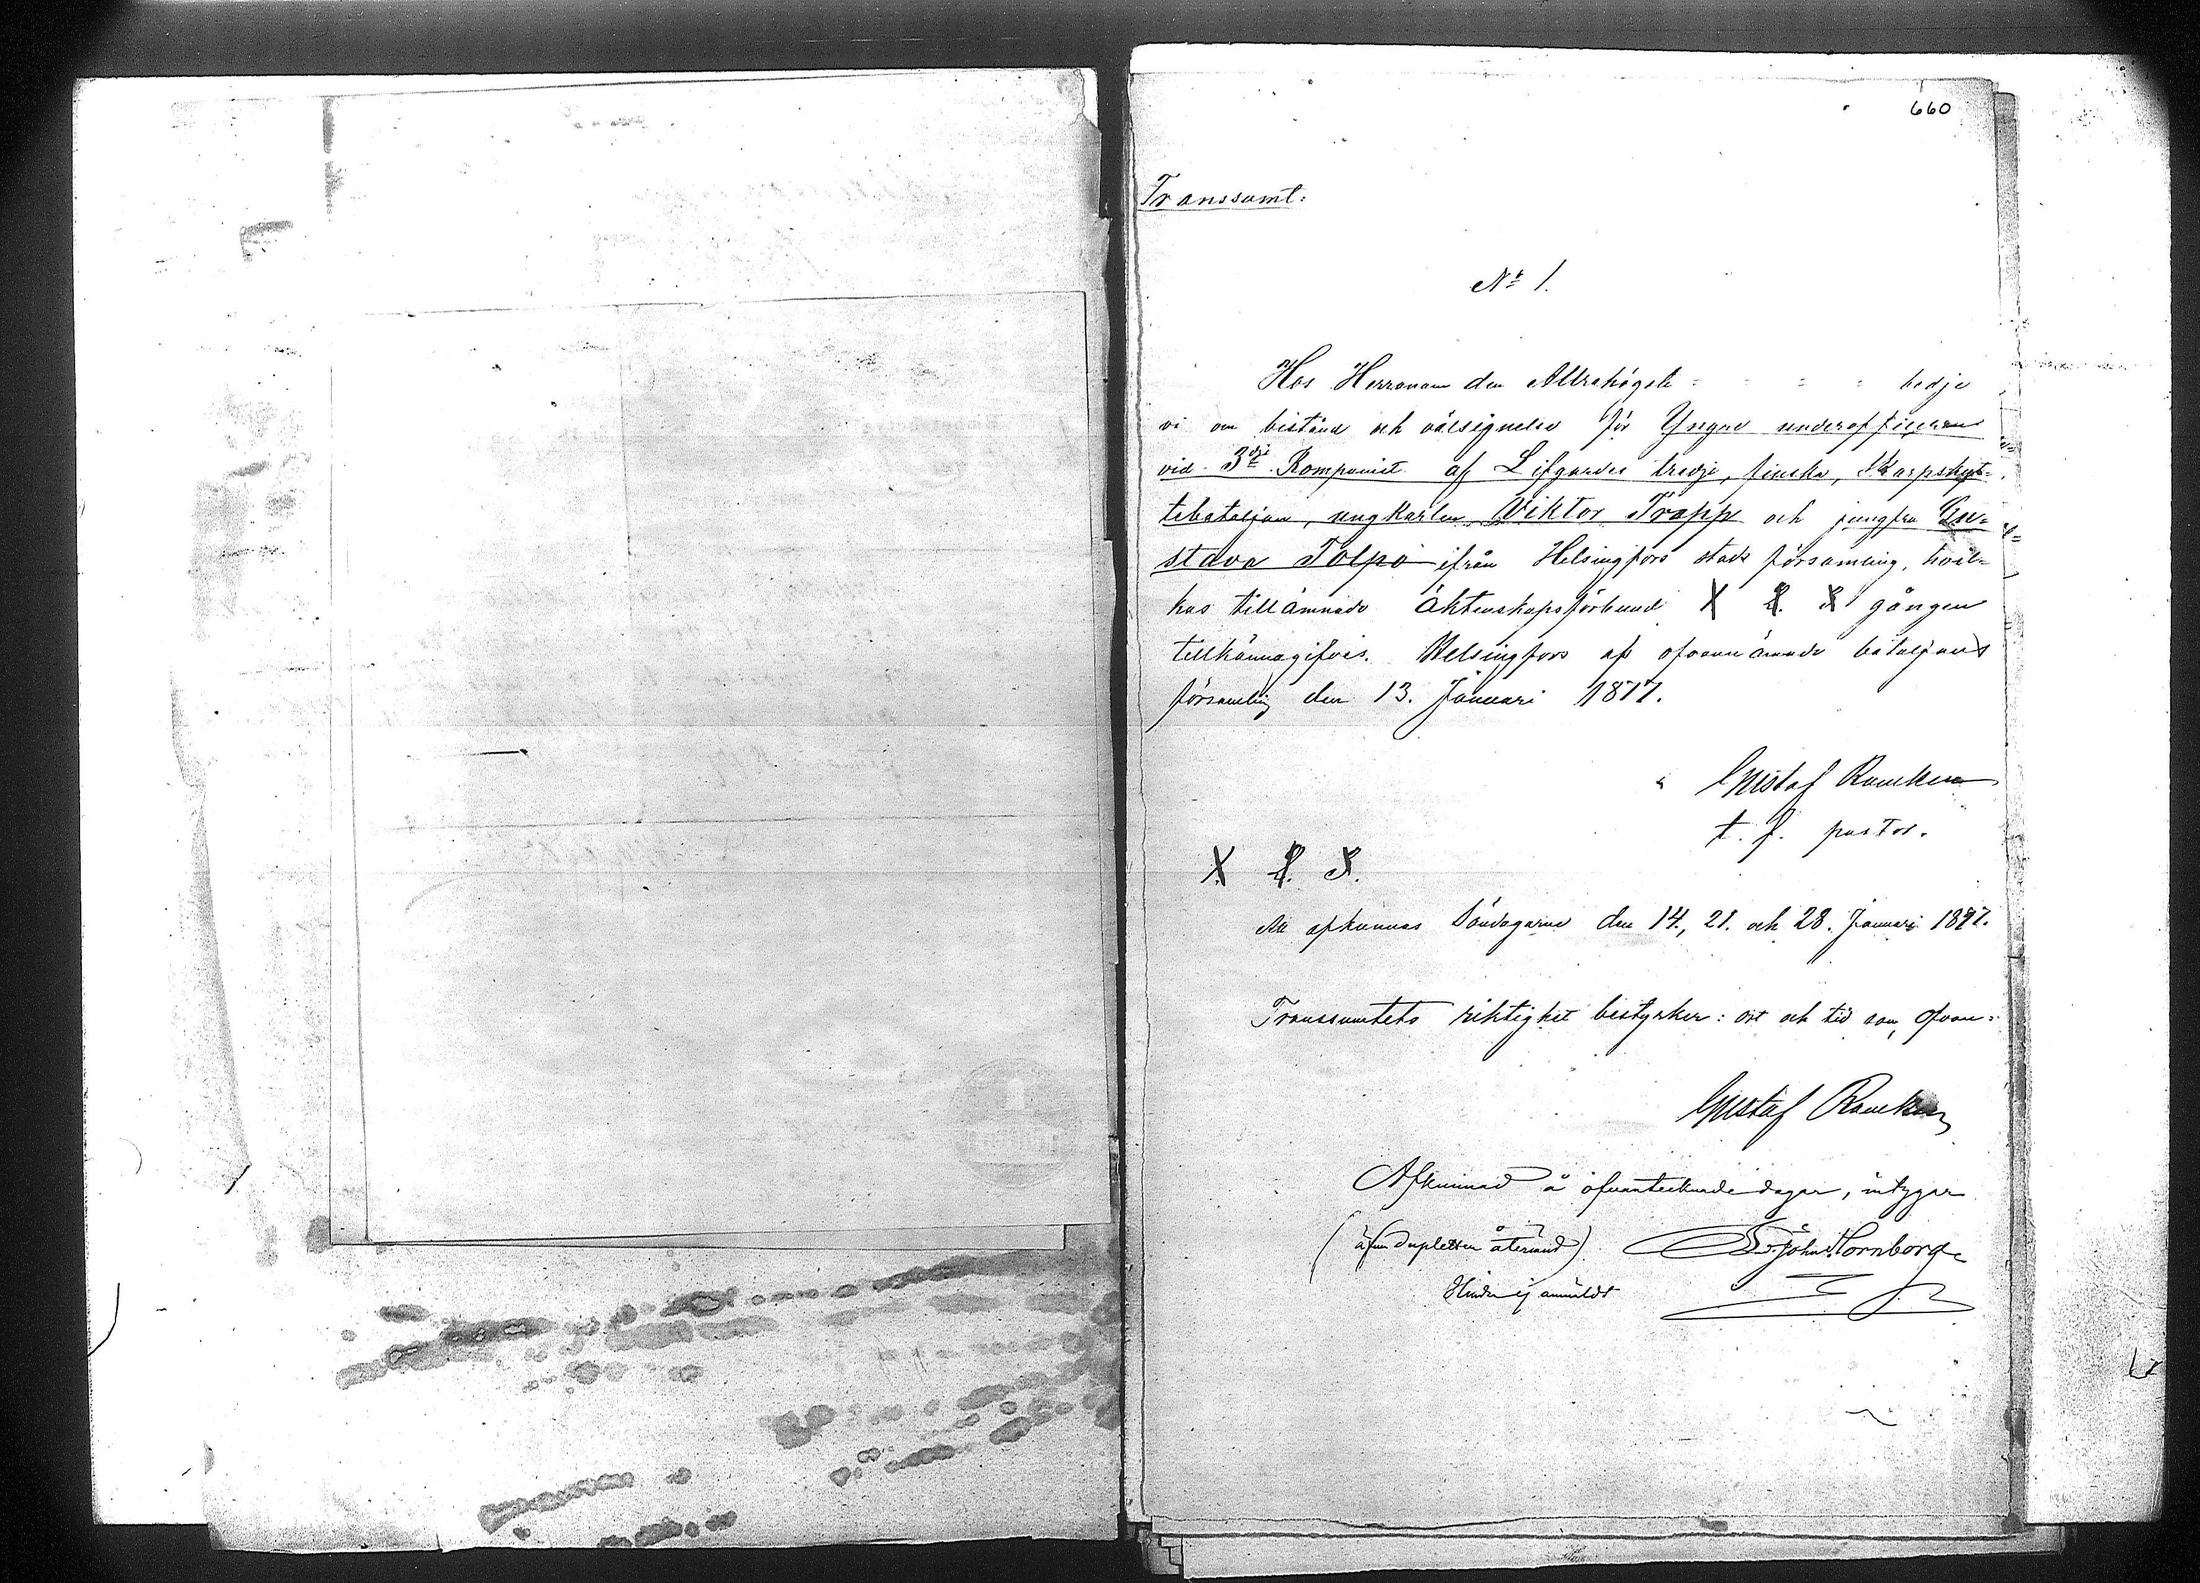 660
Transsumt:
Nº 1.
Hos Herranom den Allrahögste = - = : bedje
vi om bistånd och välsignelse för Yngre underofficeren
vid 3dje Kompaniet af Lifgardes tredje, finska, Skarpskyt-
tebataljon, ungkarlen Viktor Trapp och jungfru Gu=
stava Tolpo ifrån Helsingfors stads församling, hvil=
kas tillämnade äktenskapsförbund X 2. 3 gången
tillkännagifves. Helsingfors af ofvannämnde bataljons
församling den 13. Januari 1877.
Gustaf Rancken
t. f. pastor.
X 2. 3.
Att afkunnas Söndagarne den 14., 21. och 28. Januari 1877.
Transsumtets riktighet bestyrker: ort och tid som ofvan:
Gustaf Rancken
Afkunnad å ofvantecknade dagar, intygar
(äfven dupletten återsänd) John Hornborg
Hinder ej anmäldt